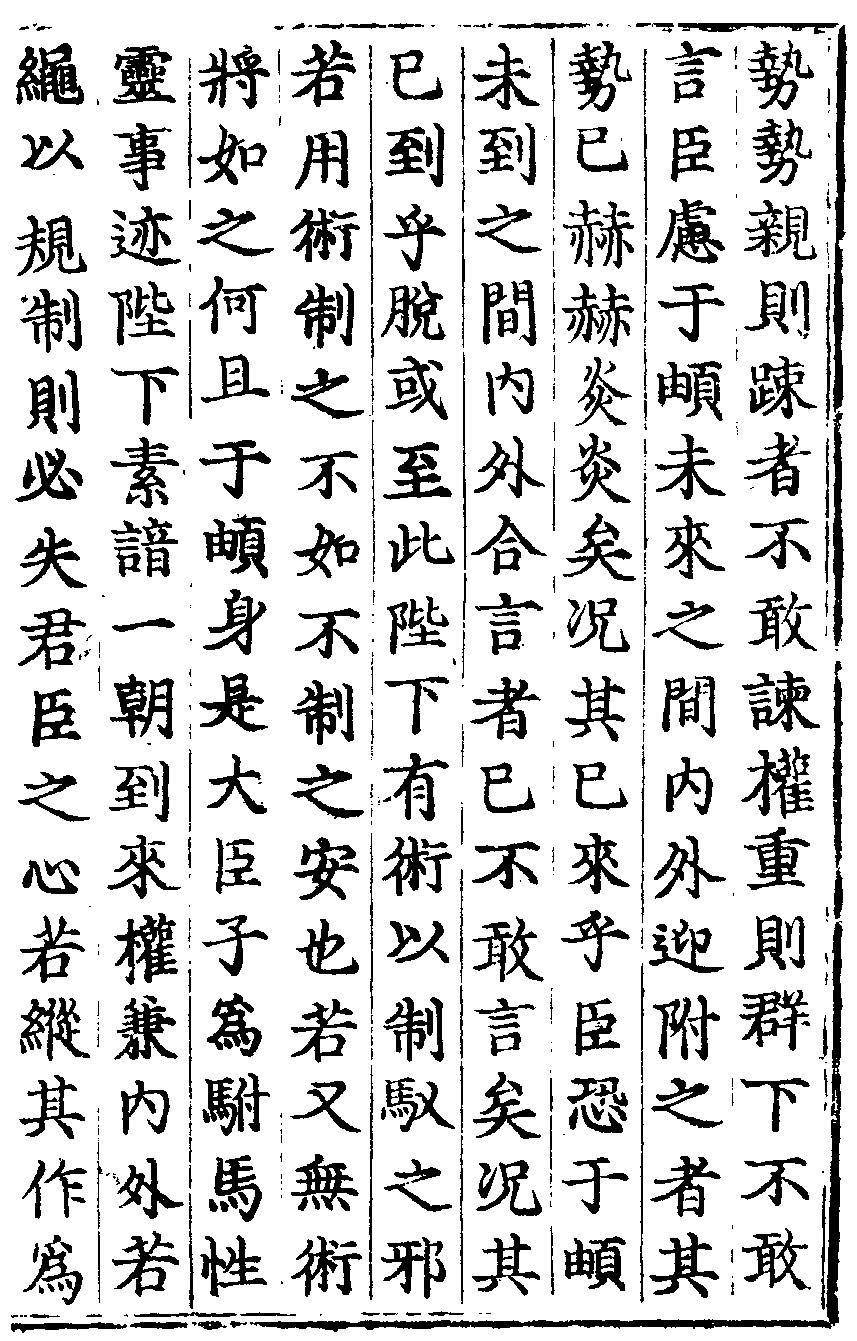 勢勢親則踈者不敢諫權重則群下不敢
言臣慮于頔未來之間内外迎附之者其
勢已赫赫炎炎矣况其已來乎臣恐于頔
未到之間内外合言者已不敢言矣况其
已到乎脫或至此陛下有術以制馭之邪
若用術制之不如不制之安也若又無術
將如之何且于頔身是大臣子為駙馬性
靈事迹陛下素諳一朝到來權兼内外若
繩以規制則必失君臣之心若縱其作為